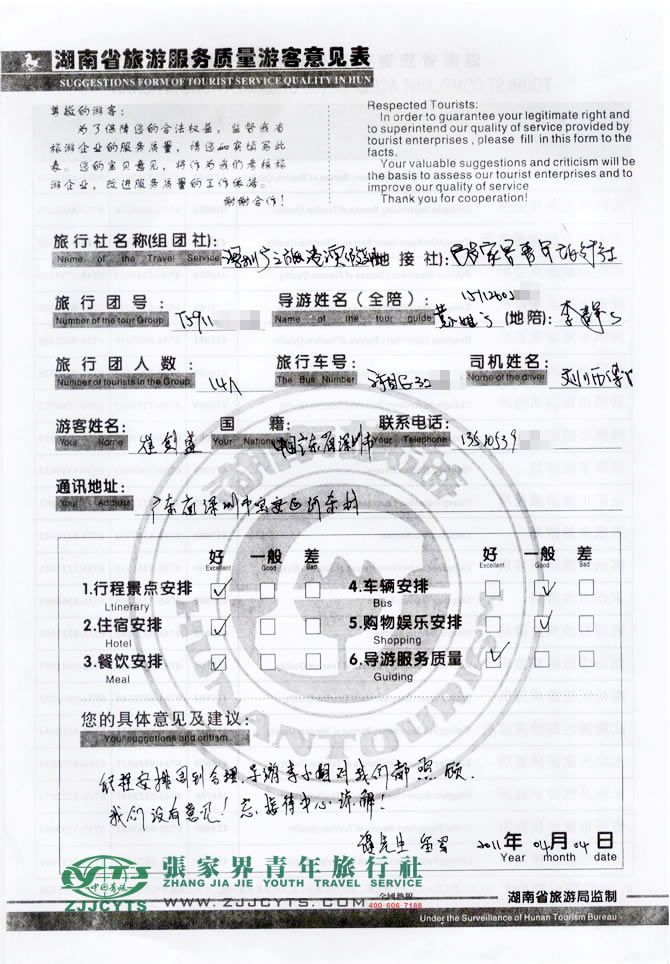 湖南省旅游服务质量游客意见表
SUGGESTIONS FORM OF TOURIST SERVICE QUALITY IN HUN
尊敬的游客：
为了保障您的合法权益，监督我省
旅游企业的服务质量，请您如实填写此
表。您的宝贝意见，将作为我们考核旅
游企业，改进服务质量的工作依据。
谢谢合作！
Respected Tourists:
In order to guarantee your legitimate right and
to superintend our quality of service provided by
tourist enterprises , please fill in this form to the
facts.
Your valuable suggestions and criticism will be
the basis to assess our tourist enterprises and to
improve our quality of service
Thank you for cooperation!
旅行社名称(组团社): 地接社): 张家界青年旅行社
Name of the Travel Service
旅行团号: T5911 导游姓名(全陪): 15112602 (地陪):
Number of the tour Group Name of the tour guide
旅行团人数: 14人 旅行车号: 32 司机姓名:
Number of tourists in the Group The Bus Number Name of the driver
游客姓名: 国籍: 中国广东省深圳市 联系电话: 13510539
Your Name Your Nationa Your Telephone
通讯地址: 广东省深圳市宝安区
Your Address
好 一般 差 好 一般 差
Excellent Good Bad Excellent Good Bad
1.行程景点安排 4.车辆安排
Ltinerary Bus
2.住宿安排 5.购物娱乐安排
Hotel Shopping
3.餐饮安排 6.导游服务质量
Meal Guiding
您的具体意见及建议:
Your suggetions and critism
安排周到合理 导游李小姐对我们都照顾.
我们没有意见! 接待中心谅解!
先生 2011年 04月 04日
Year month date
中国青旅
ZJJCYTS
張家界青年旅行社
ZHANG JIA JIE YOUTH TRAVEL SERVICE
WWW.ZJJCYTS.COM
全国热线
400 606 7188
湖南省旅游局监制
Under the Surveillance of Hunan Tourism Bureau
HUNAN TOURISM